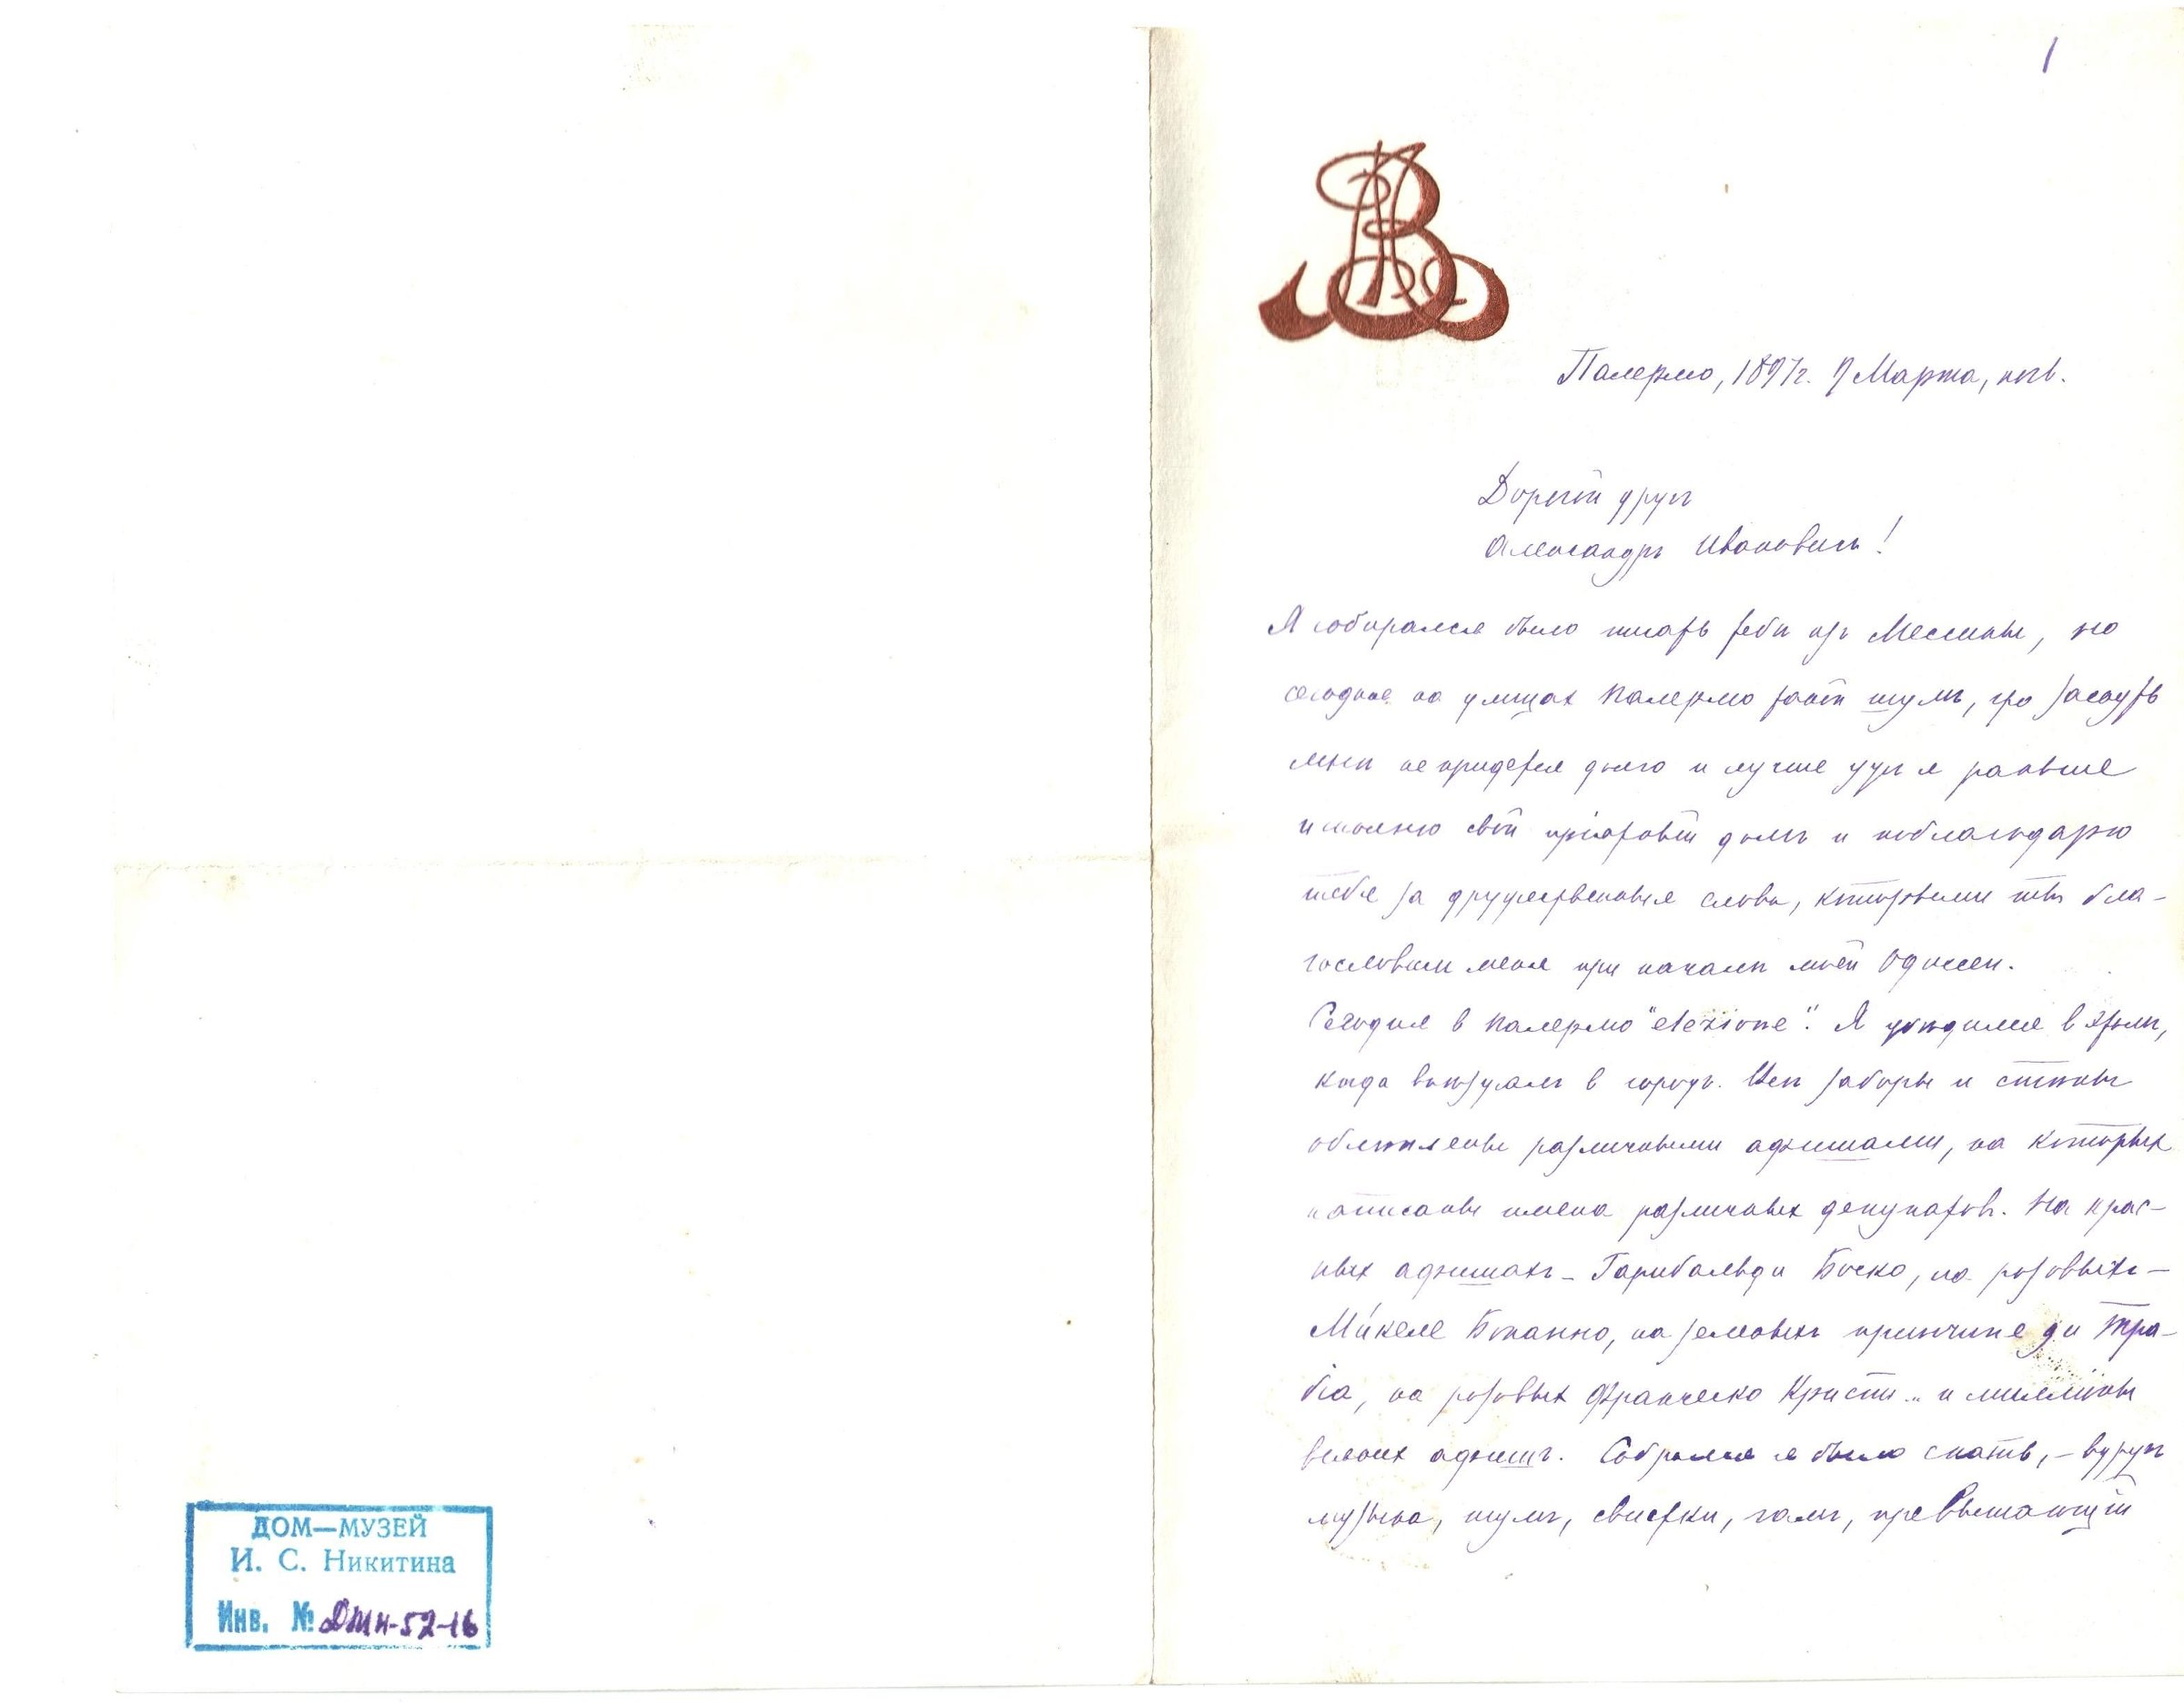 ДОМ—МУЗЕЙ
И. С. Никитина
Инв. № ДМН-52-16
1
Палермо, 1897г. 7 Марта, нов.
Дорогой другъ
Александръ Ивановичъ!
Я собирался было писать тебѣ изъ Мессины, но
сегодня на улицах Палермо такой шумъ, что заснуть
мнѣ не придется долго и лучше ужъ я раньше
исполню свой пріятный долгъ и поблагодарю
тебя за дружественныя слова, которыми ты бла-
гословилъ меня при началѣ моей Одиссеи.
Сегодня в Палермо "elezione". Я убѣдился в этомъ,
когда въѣзжалъ в городъ. Всѣ заборы и стѣны
облѣплены различными афишами, на которых
написаны имена различных депутатовъ. На крас-
ных афишахъ – Гарибальди Боско, на розовыхъ –
Ми́келе Бонанно, на зеленыхъ принчипе ди Тра-
біа, на розовых Франческо Криспи... и милліоны
всяких афишъ. Собрался я было спать, – вдругъ
музыка, шумъ, свистки, гамъ, превышающій